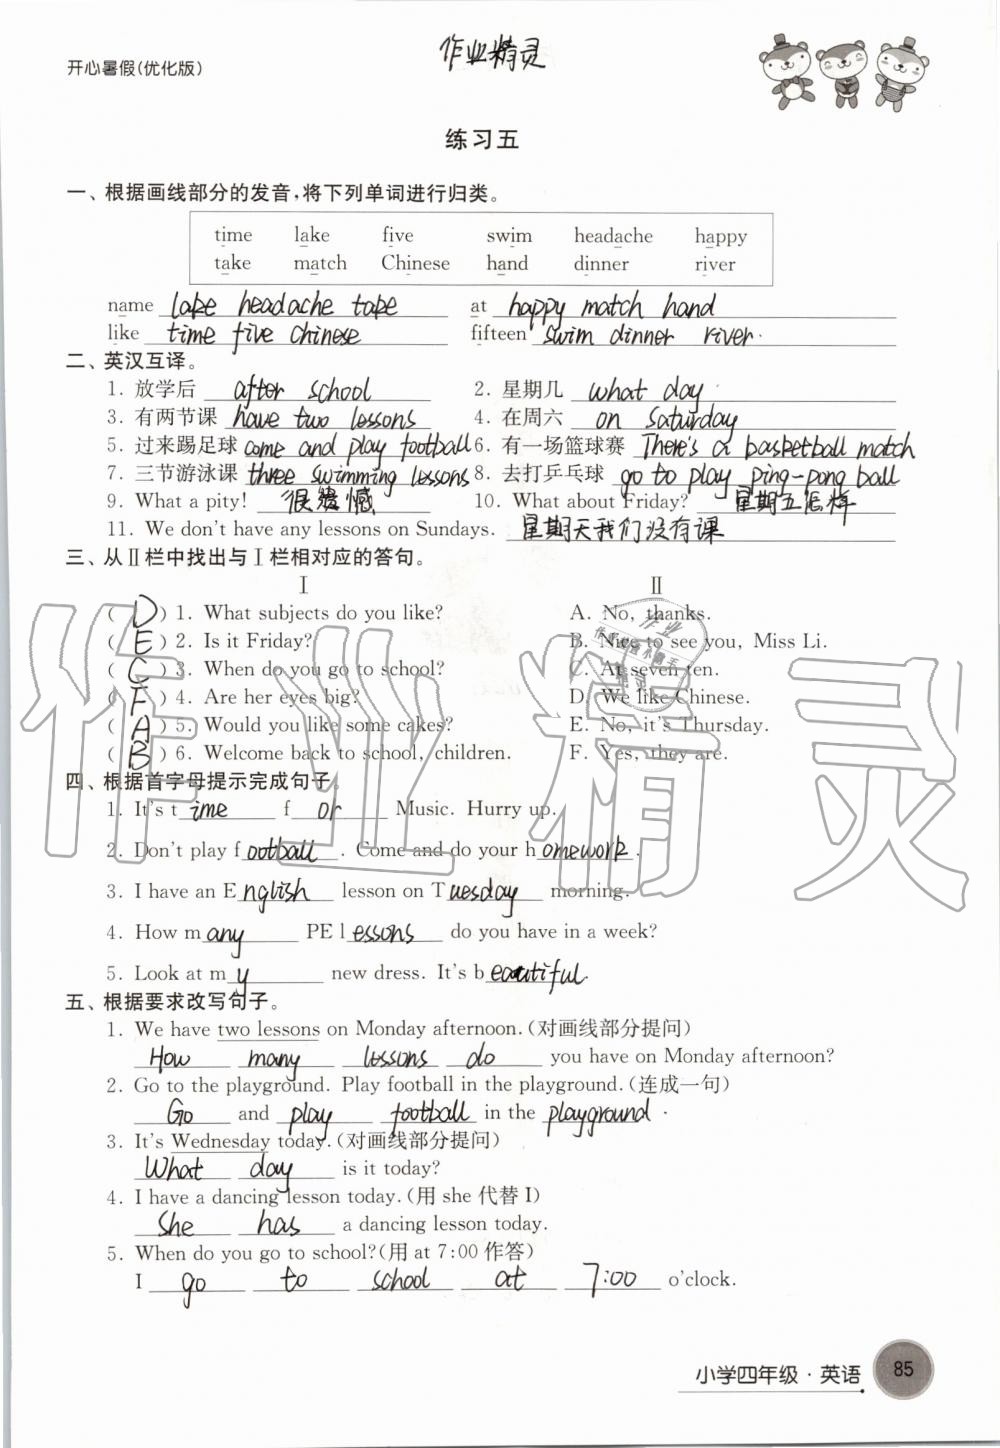 开心暑假(优化版)
作业精灵
练习五
一、根据画线部分的发音,将下列单词进行归类。
time lake five swim headache happy
take match Chinese hand dinner river
name lake headache take at happy match hand
like time five Chinese fifteen swim dinner river.
二、英汉互译。
1. 放学后 after school 2. 星期几 what day
3. 有两节课 have two lessons 4. 在周六 on Saturday
5. 过来踢足球 come and play football 6. 有一场篮球赛 There's a basketball match
7. 三节游泳课 three swimming lessons 8. 去打乒乓球 go to play ping-pong ball
9. What a pity! 很遗憾 10. What about Friday? 星期五怎样
11. We don't have any lessons on Sundays. 星期天我们没有课
三、从Ⅱ栏中找出与Ⅰ栏相对应的答句。
Ⅰ Ⅱ
( D ) 1. What subjects do you like? A. No, thanks.
( E ) 2. Is it Friday? B. Nice to see you, Miss Li.
( C ) 3. When do you go to school? C. At seven ten.
( F ) 4. Are her eyes big? D. We like Chinese.
( A ) 5. Would you like some cakes? E. No, it's Thursday.
( B ) 6. Welcome back to school, children. F. Yes, they are.
四、根据首字母提示完成句子。
1. It's time for Music. Hurry up.
2. Don't play football. Come and do your homework.
3. I have an English lesson on Tuesday morning.
4. How many PE lessons do you have in a week?
5. Look at my new dress. It's beautiful.
五、根据要求改写句子。
1. We have two lessons on Monday afternoon.(对画线部分提问)
How many lessons do you have on Monday afternoon?
2. Go to the playground. Play football in the playground.(连成一句)
Go and play football in the playground.
3. It's Wednesday today.(对画线部分提问)
What day is it today?
4. I have a dancing lesson today.(用 she 代替 I)
She has a dancing lesson today.
5. When do you go to school?(用 at 7:00 作答)
I go to school at 7:00 o'clock.
小学四年级·英语 85
作业精灵